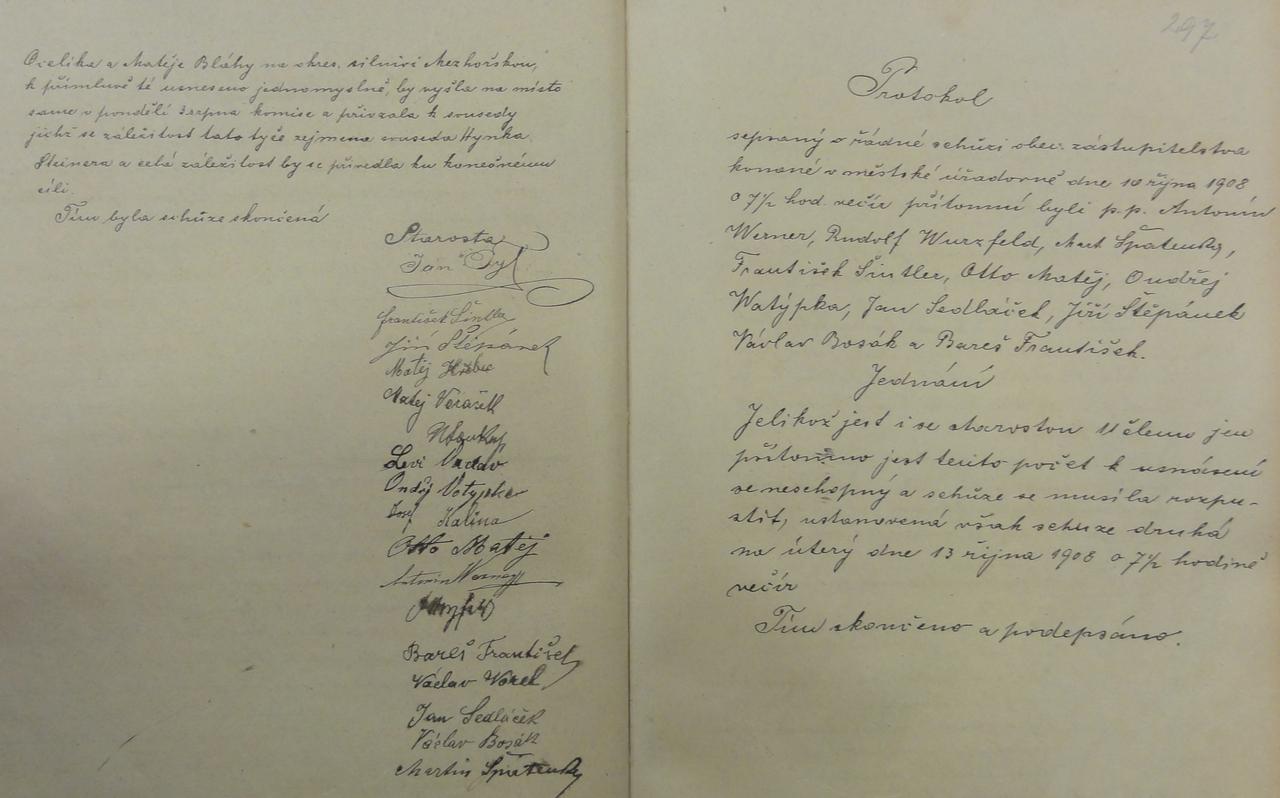 Ocelika a Matěje Bláhy na okres. silnici Mezhořskou,
k přímluvě té usneseno jednomyslně, by vyšla na místo
samé v pondělí 3 srpna komise a přivzala k sousedy
jichž se záležitost tato týče zejmena souseda Hynka
Steinera a celá záležitost by se přivedla ku konečnému
cíli.
Tím byla schůze skončená
Starosta
Jan Tyl
František Šintler
Jiří Štěpánek
Matěj
Matěj
Levi Václav
Ondřej Votypka
Josef Kalina
Otto Matěj
Antonin Werner
Bareš František
Václav Vorel
Jan Sedláček
Václav Bosák
Martin Špatenský
297
Protokol
sepsaný o řádné schůzi obec. zástupitelstva
konané v městské úřadovně dne 10 října 1908
o 7 1/2 hod. večír přítomní byli p.p. Antonín
Werner, Rudolf Wurzfeld, Mart Špatenský,
František Šintler, Otto Matěj, Ondřej
Watýpka, Jan Sedláček, Jiří Štěpánek
Václav Bosák a Bareš František.
Jednání
Jelikož jest i se starostou 11 členu jen
přítomno jest tento počet k usnášení
se neschopný a schůze se musila rozpu-
stit, ustanovená však schuze druhá
na úterý dne 13 října 1908 o 7 1/2 hodině
večír
Tím skončeno a podepsáno.